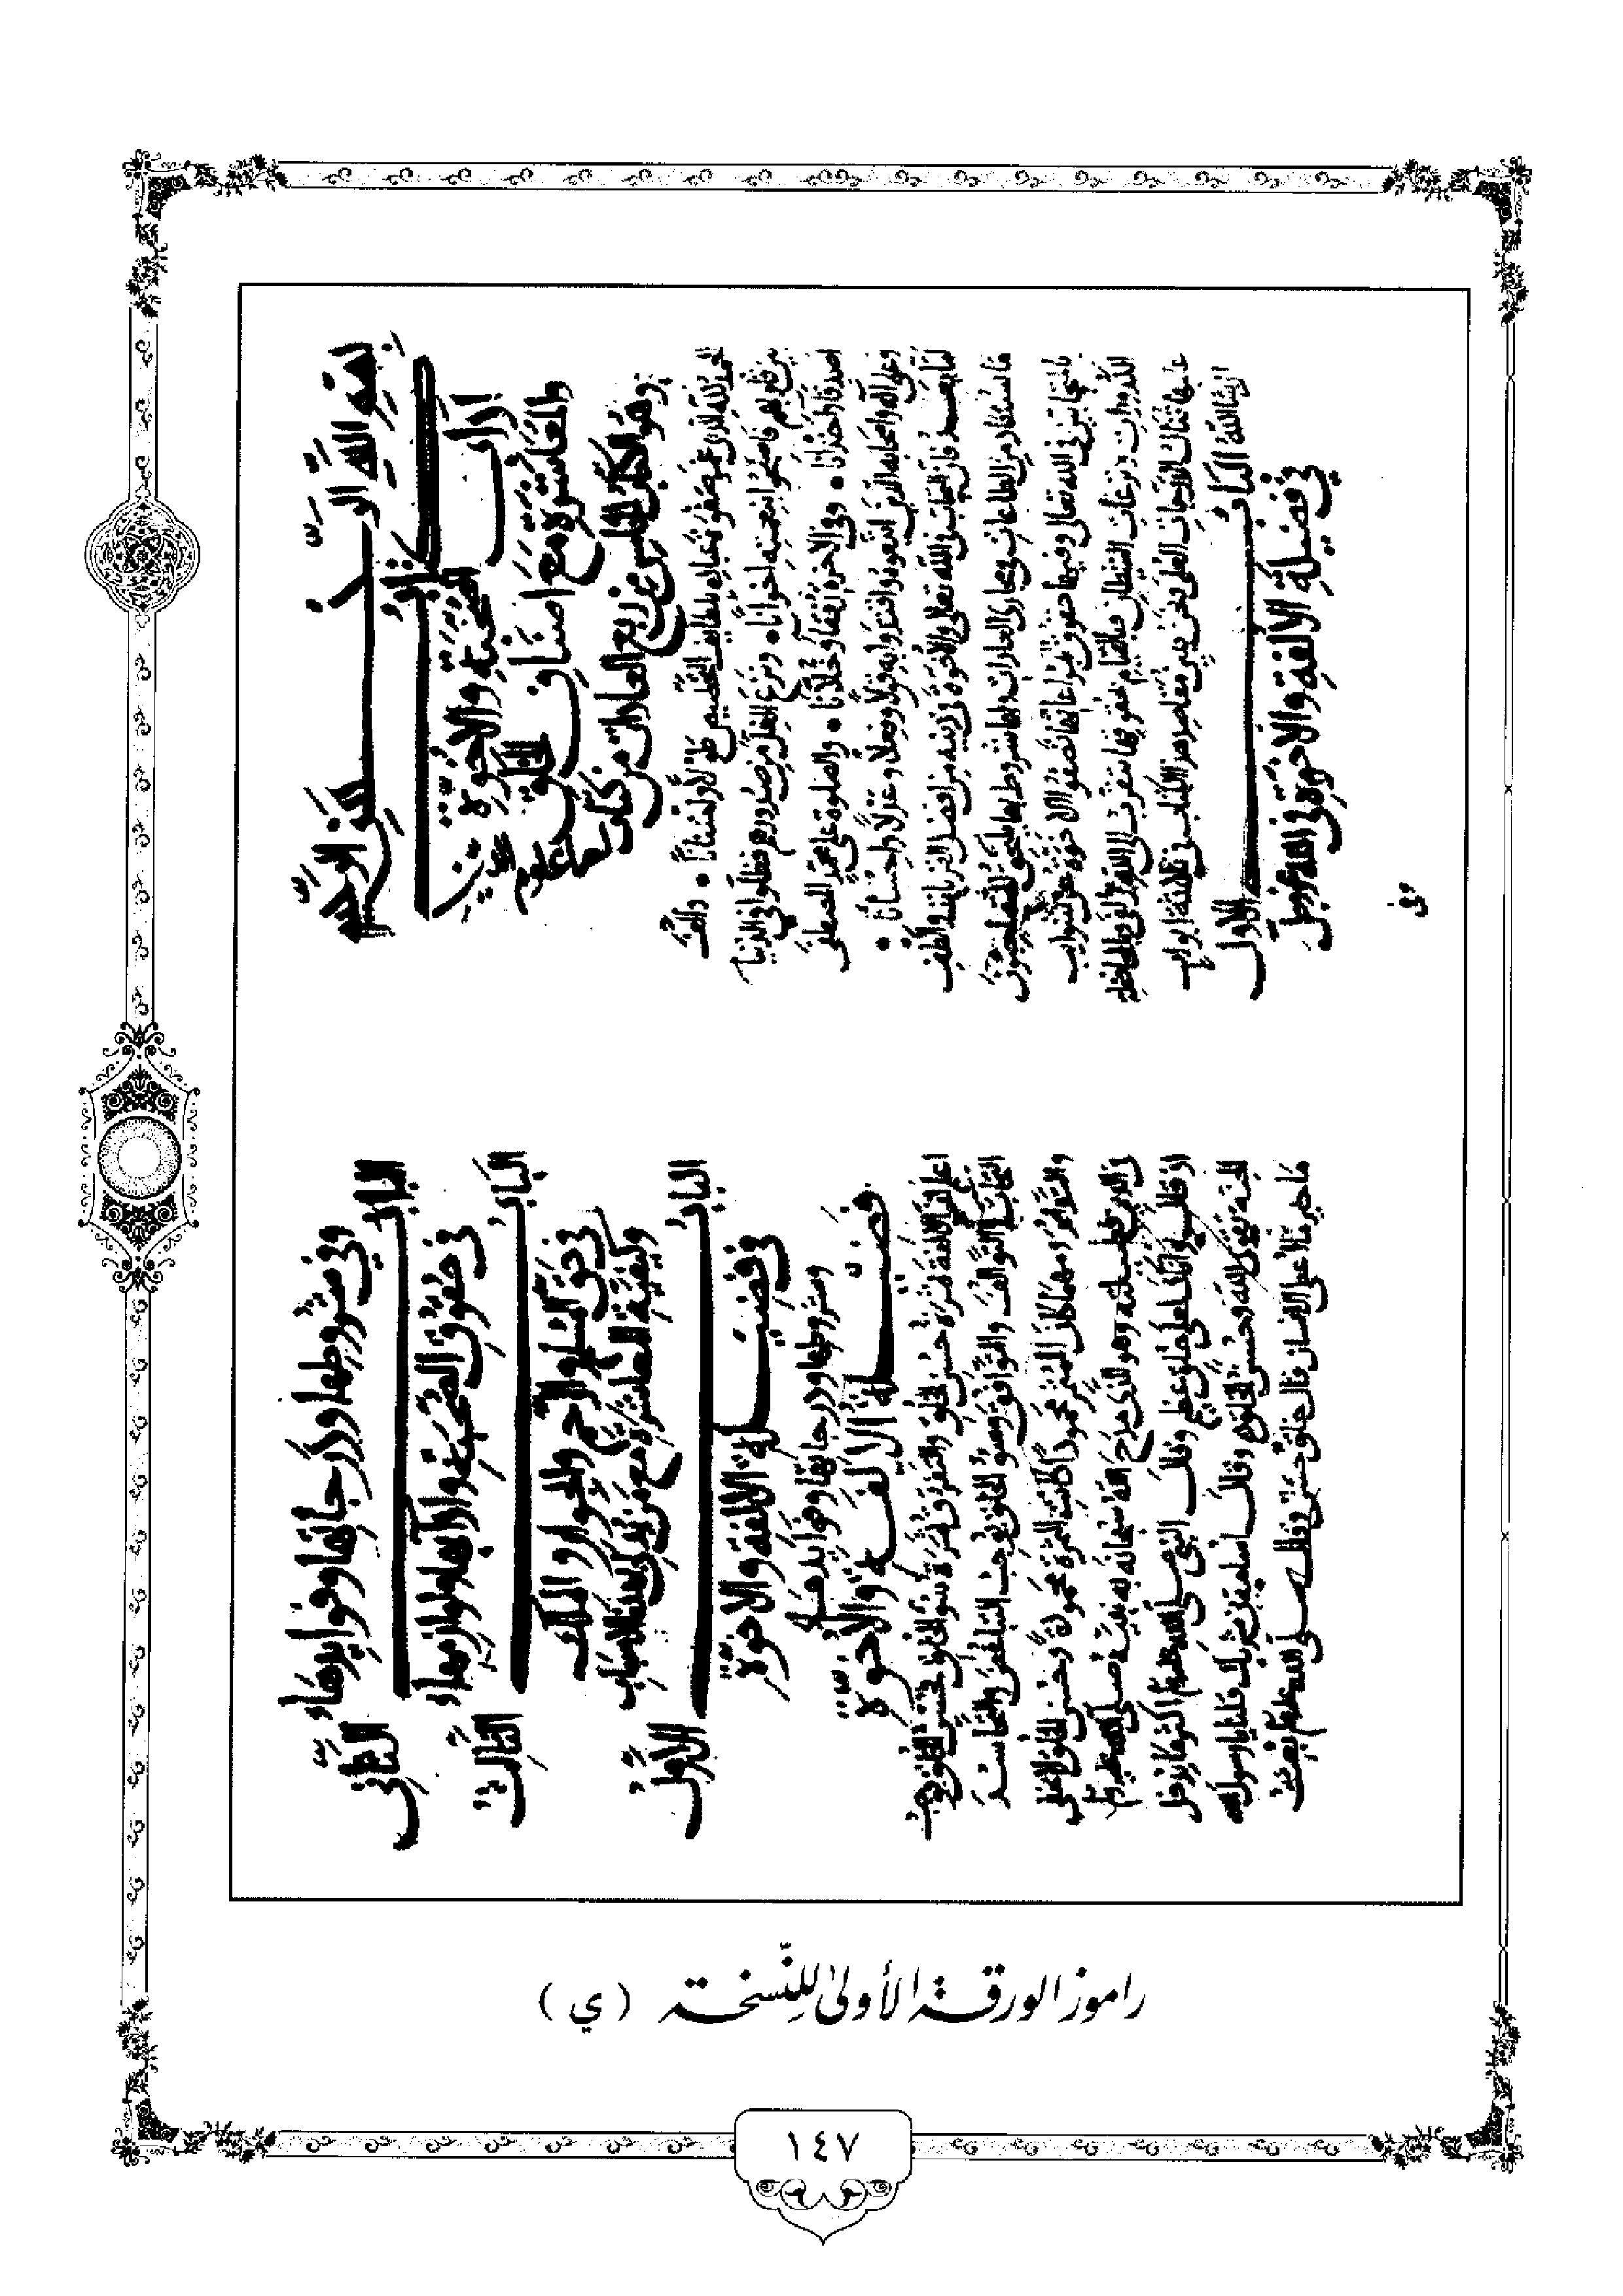 بسم الله الرحمن الرحيم
كتاب
آداب الصحبة والاخوة
والمعاشرة مع اصناف الخلق
وهو الكتاب الخامس من ربع العادات من كتاب
الحمد لله الذي غمر صفوة عباده بلطايف التخصيص طولا وامتنانا • والف
بين قلوبهم فاصبحوا بنعمته اخوانا • ونزع الغل من صدورهم فظلوا في الدنيا
اصدقا واخدانا • وفي الاخرة رفقا وخلانا • والصلوة على محمد المصطفى
وعلى آله واصحابه الذين اتبعوه واقتدوا به قولا وفعلا وعدلا واحسانا •
اما بعد فان التحاب في الله تعالى والاخوة في دينه من افضل القربات والطف
ما يستفاد من الطاعات في مجاري العادات ولها شروط بها يلتحق المتصاحبون
بالمتحابين في الله تعالى وفيها حقوق بمراعاتها تصفو الاخوة عن شوايب
الكدورات ونزغات الشيطان فبالقيام بحقوقها يتقرب الى الله زلفى وبالمحافظة
عليها تنال الدرجات العلى ونحن نبين مقاصد هذا الكتاب في ثلاثة ابواب
ان شا الله الباب الاول
في فضيلة الالفة والاخوة في الله عز وجل
وفي
وفي شروطها ودرجاتها وفوايدها
الباب الثاني
في حقوق الصحبة وآدابها ولوازمها
الباب الثالث
في حق المسلم والرحم والجوار والملك
وكيفية المعاشرة مع من يدلي بهذه الاسباب
الباب الاول
في فضيلة الالفة والاخوة
وشروطها ودرجاتها وفوايدها
فضيلة الالفة والاخوة
اعلم ان الالفة ثمرة حسن الخلق والتفرق ثمرة سو الخلق فحسن الخلق يوجب
التحاب والتوالف والتوافق وسو الخلق يوجب التباغض والتحاسد
والتدابر ومهما كان المثمر محمودا كانت الثمرة محمودة وحسن الخلق لا يخفى
في الدين فضيلته وهو الذي مدح الله سبحانه به نبيه صلى الله عليه وسلم
اذ قال وانك لعلى خلق عظيم وقال النبي صلى الله عليه وسلم اكثر ما يدخل
الجنة تقوى الله وحسن الخلق وقال اسامة بن شريك قلنا يا رسول الله
ما خير ما اعطي الانسان قال خلق حسن وقال صلى الله عليه وسلم بعثت
راموز الورقة الأولى للنسخة (ي)
١٤٧